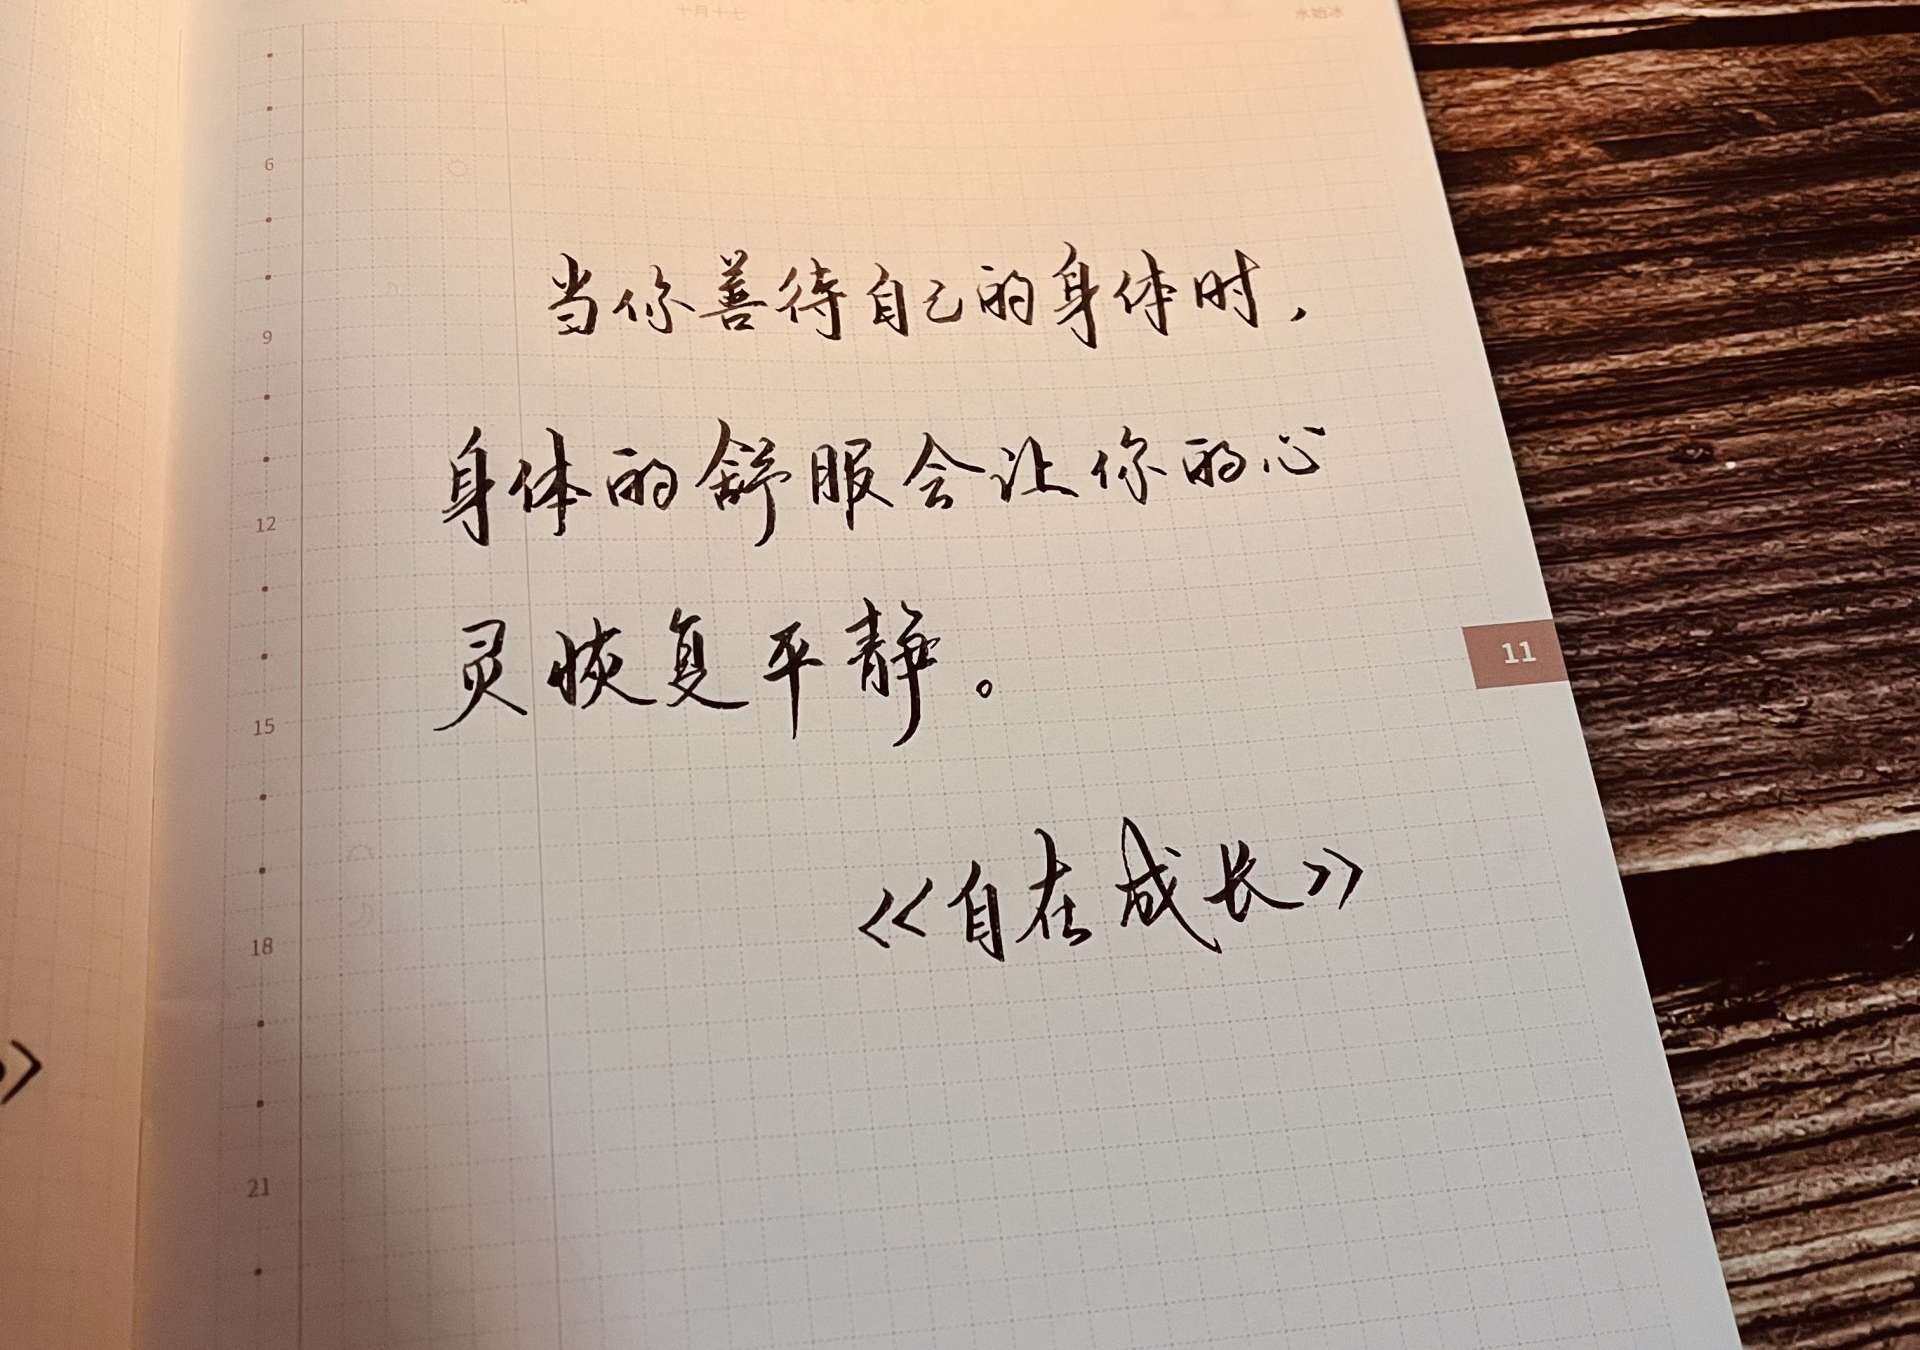 当你善待自己的身体时，
身体的舒服会让你的心
灵恢复平静。
《自在成长》
6
9
12
15
18
21
11